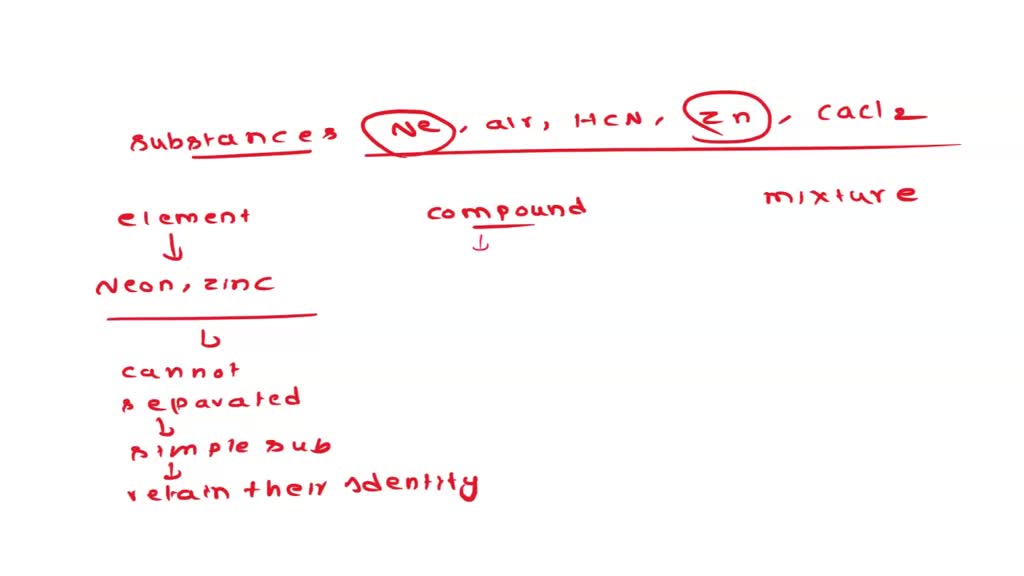 substances Ne, air, HCN, Zn, cacl2
element compound mixture
Neon, zinc
cannot
separated
simple sub
retain their sdentity